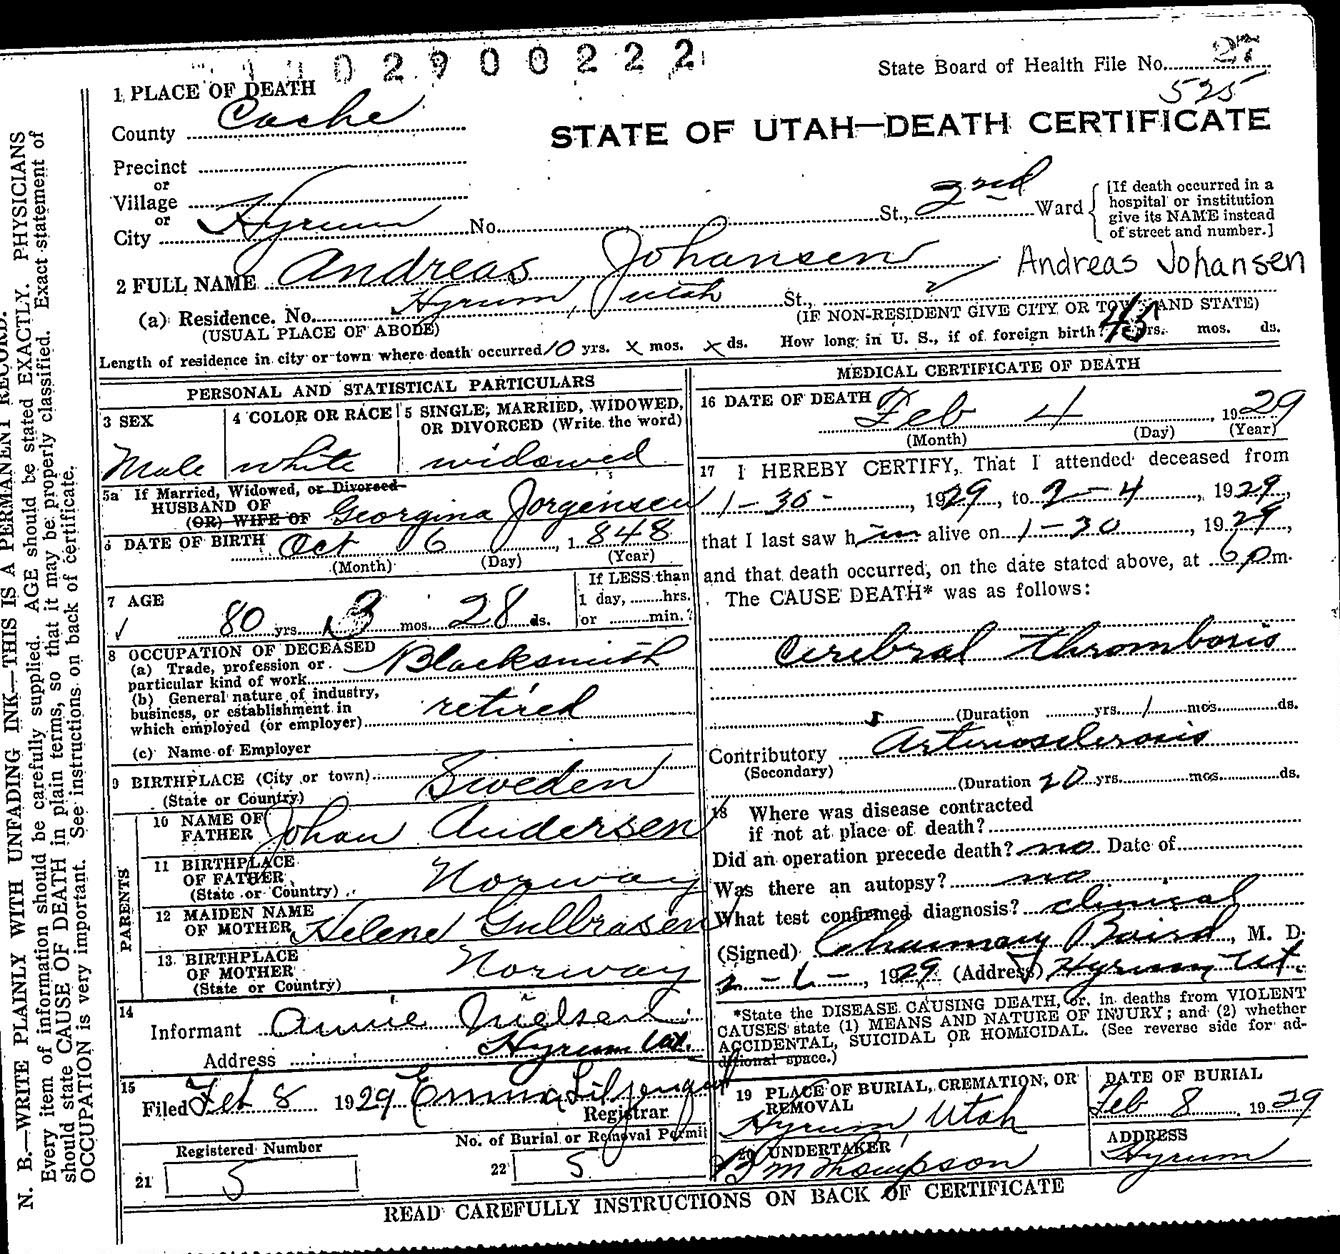 02900222
State Board of Health File No. 27
525
1 PLACE OF DEATH
County Cache
STATE OF UTAH—DEATH CERTIFICATE
Precinct
or
Village
or
City Hyrum No. St., 2nd Ward
[If death occurred in a
hospital or institution
give its NAME instead
of street and number.]
2 FULL NAME Andreas Johansen Andreas Johansen
(a) Residence. No. Hyrum, Utah St.,
(USUAL PLACE OF ABODE) (IF NON-RESIDENT GIVE CITY OR TOWN AND STATE)
Length of residence in city or town where death occurred 10 yrs. x mos. x ds. How long in U. S., if of foreign birth 45 yrs. mos. ds.
PERSONAL AND STATISTICAL PARTICULARS
3 SEX
Male
4 COLOR OR RACE
white
5 SINGLE, MARRIED, WIDOWED,
OR DIVORCED (Write the word)
widowed
5a If Married, Widowed, or Divorced
HUSBAND OF
(OR) WIFE OF Georgina Jorgensen
6 DATE OF BIRTH Oct 6, 1848
(Month) (Day) (Year)
7 AGE
80 yrs. 3 mos. 28 ds.
If LESS than
1 day, hrs.
or min.?
8 OCCUPATION OF DECEASED
(a) Trade, profession or
particular kind of work Blacksmith
(b) General nature of industry,
business, or establishment in
which employed (or employer) retired
(c) Name of Employer
9 BIRTHPLACE (City or town)
(State or Country) Sweden
PARENTS
10 NAME OF
FATHER Johan Andersen
11 BIRTHPLACE
OF FATHER
(State or Country) Norway
12 MAIDEN NAME
OF MOTHER Helene Gulbrasen
13 BIRTHPLACE
OF MOTHER
(State or Country) Norway
14
Informant Annie Nielsen
Address Hyrum Ut.
15
Filed Feb 8 1929 Emma Liljenquist
Registrar
Registered Number
21 5
No. of Burial or Removal Permit
22 5
MEDICAL CERTIFICATE OF DEATH
16 DATE OF DEATH Feb 4, 1929
(Month) (Day) (Year)
17 I HEREBY CERTIFY, That I attended deceased from
1-30-, 1929, to 2-4, 1929,
that I last saw him alive on 1-30, 1929,
and that death occurred, on the date stated above, at 6 p m.
The CAUSE DEATH* was as follows:
Cerebral thrombosis
(Duration yrs. 1 mos. ds.
Contributory Arteriosclerosis
(Secondary)
(Duration 20 yrs. mos. ds.
18 Where was disease contracted
if not at place of death?
Did an operation precede death? no. Date of
Was there an autopsy? no
What test confirmed diagnosis? clinical
(Signed) Baird, M. D.
1929 (Address) Hyrum, Ut.
*State the DISEASE CAUSING DEATH, or, in deaths from VIOLENT
CAUSES state (1) MEANS AND NATURE OF INJURY; and (2) whether
ACCIDENTAL, SUICIDAL OR HOMICIDAL. (See reverse side for ad-
ditional space.)
19 PLACE OF BURIAL, CREMATION, OR
REMOVAL
Hyrum, Utah
DATE OF BURIAL
Feb 8, 1929
20 UNDERTAKER
Thompson
ADDRESS
Hyrum
READ CAREFULLY INSTRUCTIONS ON BACK OF CERTIFICATE
N. B.—WRITE PLAINLY WITH UNFADING INK—THIS IS A PERMANENT RECORD.
Every item of information should be carefully supplied. AGE should be stated EXACTLY. PHYSICIANS
should state CAUSE OF DEATH in plain terms, so that it may be properly classified. Exact statement of
OCCUPATION is very important. See instructions on back of certificate.